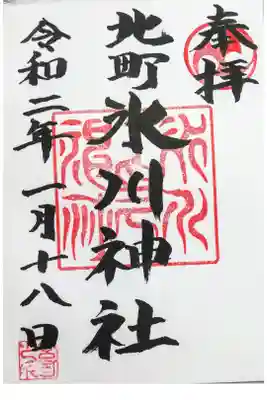 奉拝
北町氷川神社
令和二年一月十八日